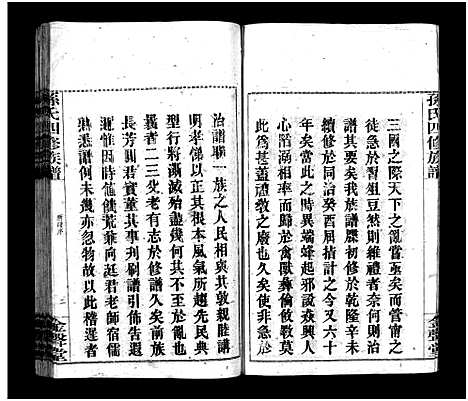 孫氏四修族譜
金聲堂
三國之際天下之亂嘗亟矣而管甯之
徒急於習俎豆然則維禮者奈何則治
譜其要矣我族譜牒初修於乾隆辛未
續修於同治癸酉屈指計之今又六十
年矣當此之時異端蜂起邪說焱興人
心陷溺相率而歸於禽獸彝倫攸斁莫
此為甚蓋禮教之廢也久矣使非急於
治譜聯一族之人民相與其敦親睦講
明孝悌以正其根本風氣所趨先民典
型行將漸滅殆盡幾何其不至於亂也
曩者一二三父老有志於修譜久矣前族
長芳圃君實董其事刋刷譜引佈告遐
邇惟因時值饑荒兼向誕君老師宿儒
熟悉譜例未幾亦忽物故以此稽遲者
孫氏四修族譜
金聲堂